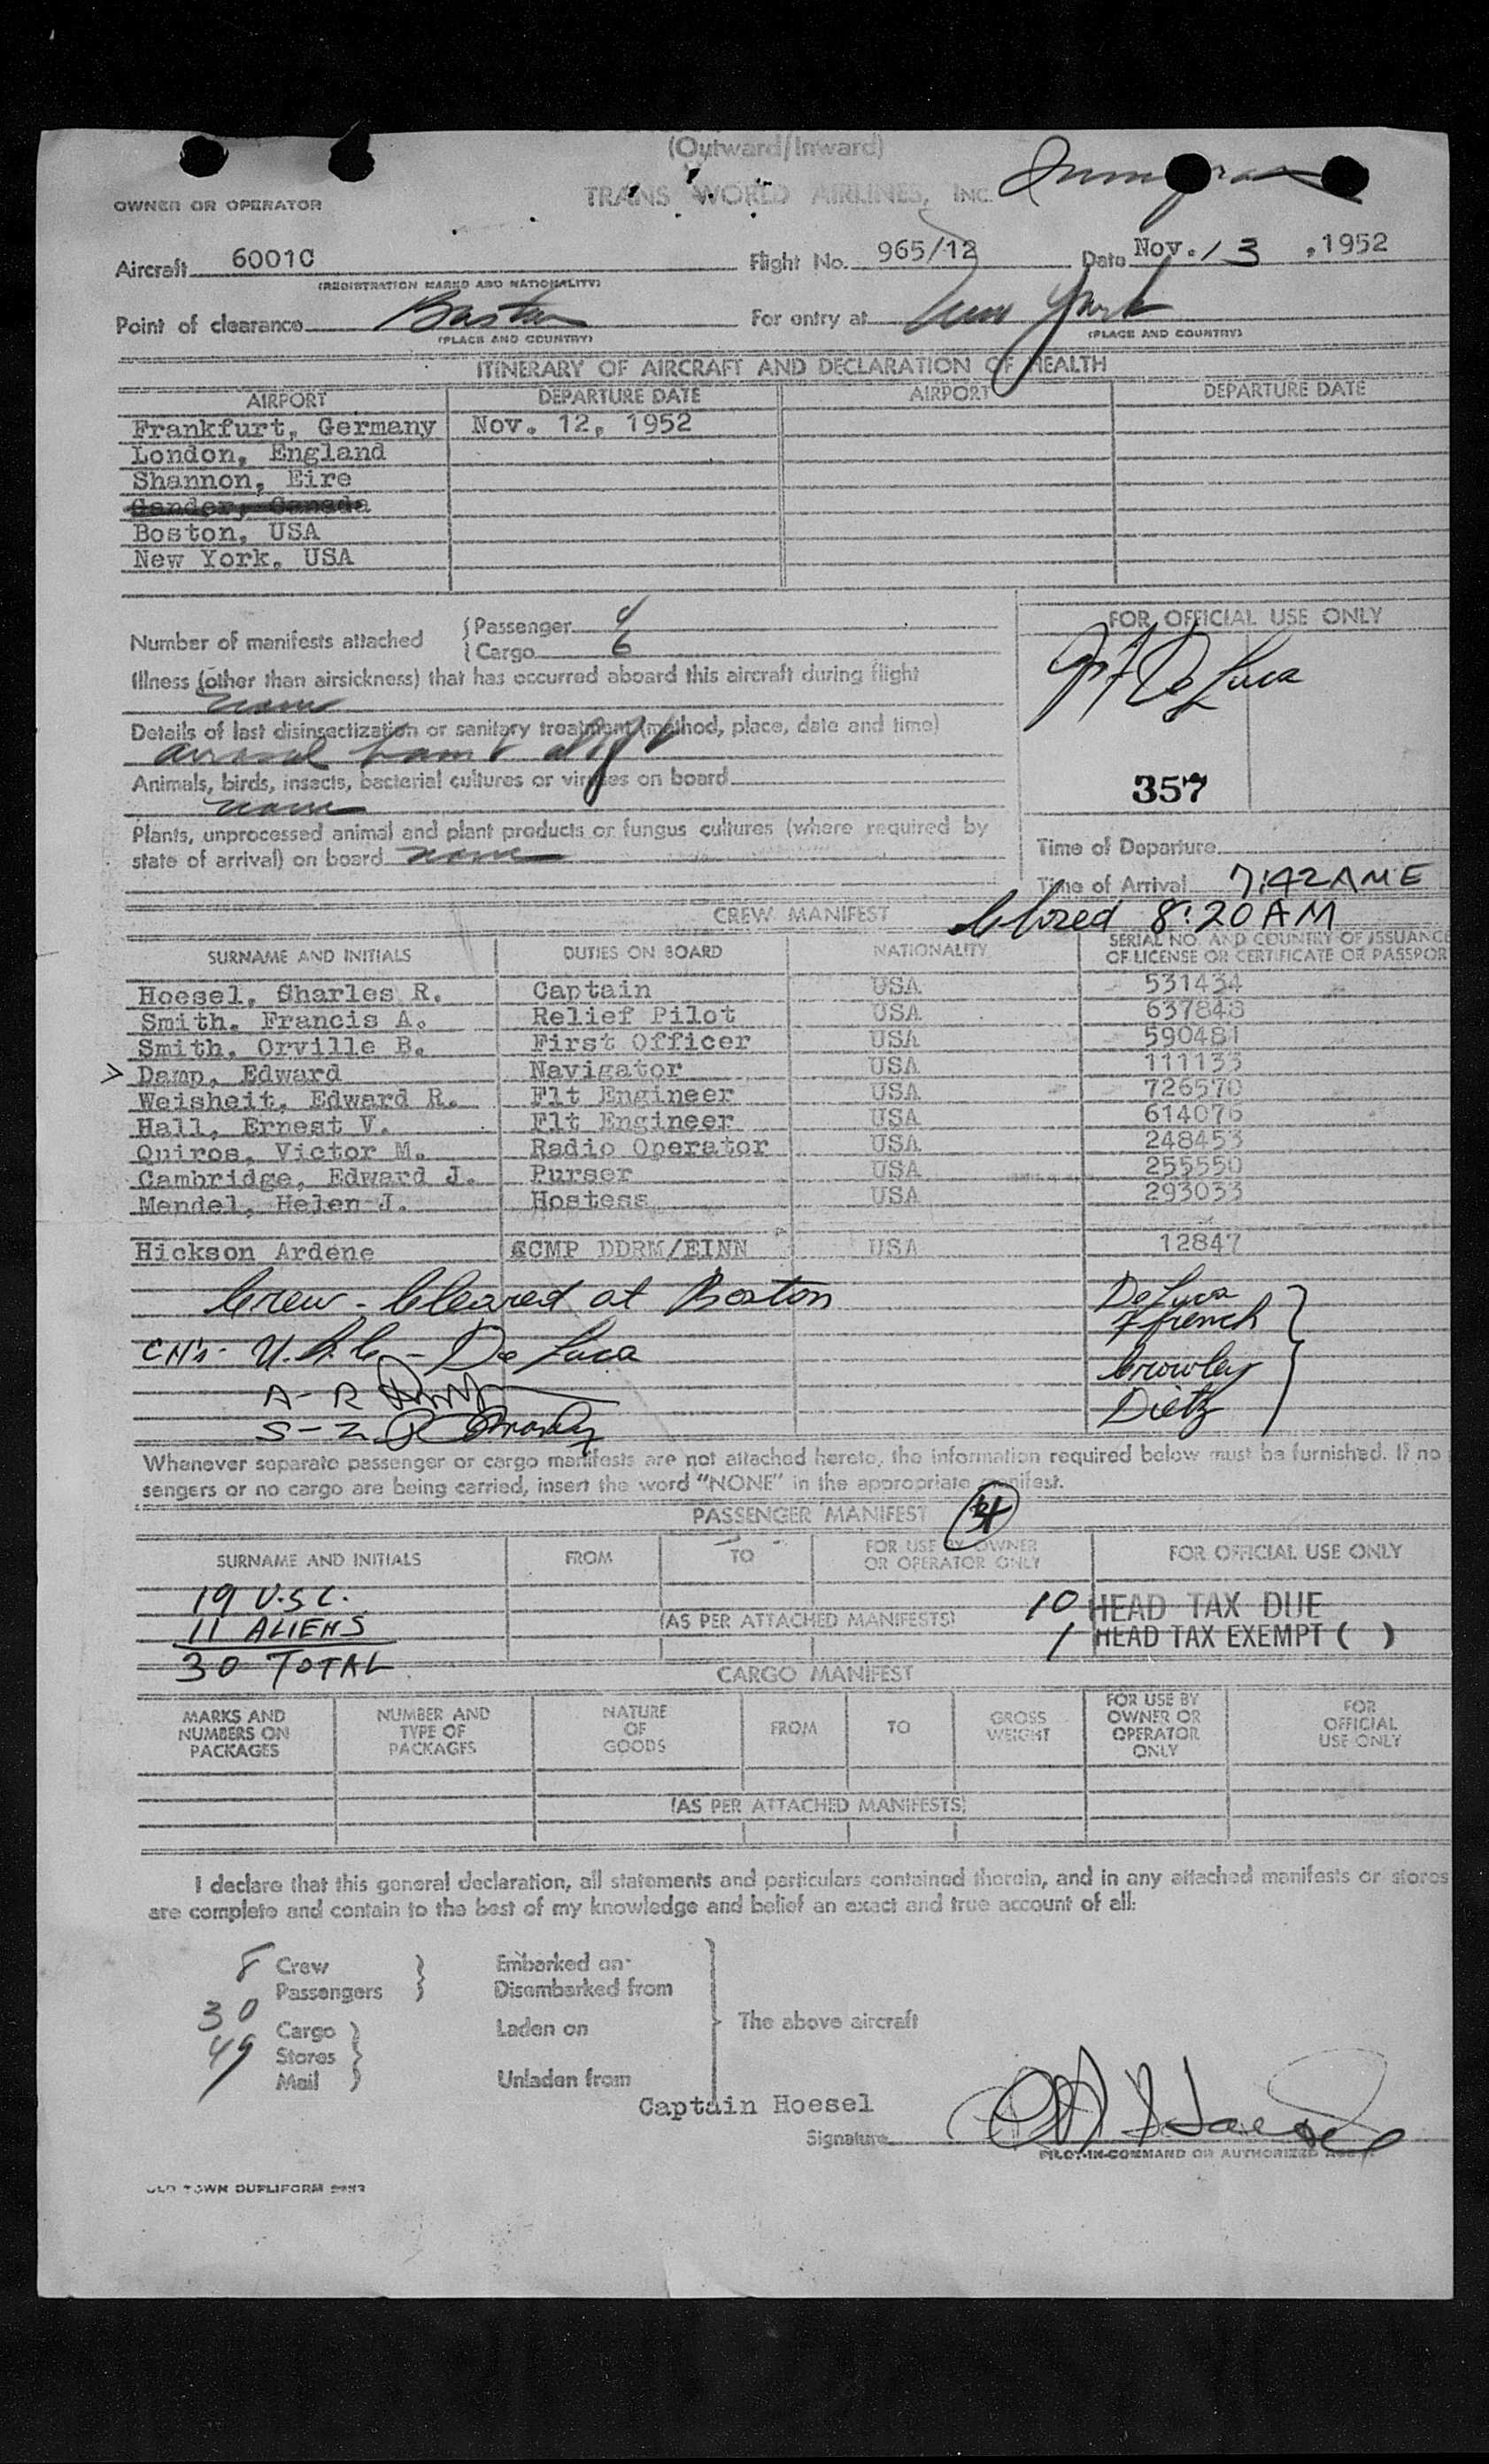 (Outward/Inward)
TRANS WORLD AIRLINES, INC.
OWNER OR OPERATOR
Aircraft 6001C Flight No. 965/12 Date Nov. 13, 1952
(REGISTRATION MARKS AND NATIONALITY)
Point of clearance Boston For entry at New York
(PLACE AND COUNTRY) (PLACE AND COUNTRY)
ITINERARY OF AIRCRAFT AND DECLARATION OF HEALTH
AIRPORT DEPARTURE DATE AIRPORT DEPARTURE DATE
Frankfurt, Germany Nov. 12, 1952
London, England
Shannon, Eire
Gander, Canada
Boston, USA
New York, USA
FOR OFFICIAL USE ONLY
Number of manifests attached
Passenger 4
Cargo 6
De Luca
Illness (other than airsickness) that has occurred aboard this aircraft during flight
none
Details of last disinsectization or sanitary treatment (method, place, date and time)
Animals, birds, insects, bacterial cultures or viruses on board
none
357
Plants, unprocessed animal and plant products or fungus cultures (where required by
state of arrival) on board none
Time of Departure
Time of Arrival 7:42 AM E
Cleared 8:20 AM
CREW MANIFEST
SURNAME AND INITIALS DUTIES ON BOARD NATIONALITY SERIAL NO. AND COUNTRY OF ISSUANCE
OF LICENSE OR CERTIFICATE OR PASSPOR
Hoesel, Sharles R. Captain USA 531434
Smith, Francis A. Relief Pilot USA 637848
Smith, Orville B. First Officer USA 590481
> Damp, Edward Navigator USA 111133
Weisheit, Edward R. Flt Engineer USA 726570
Hall, Ernest V. Flt Engineer USA 614076
Quiros, Victor M. Radio Operator USA 248453
Cambridge, Edward J. Purser USA 255550
Mendel, Helen J. Hostess USA 293033
Hickson Ardene CMP DDRM/EINN USA 12847
Crew - Cleared at Boston
De Luca
Ffrench
CH's - U.S.C. - De Luca
Crowley
A - R
Dietz
S - Z
Whenever separate passenger or cargo manifests are not attached hereto, the information required below must be furnished. If no
sengers or no cargo are being carried, insert the word "NONE" in the appropriate manifest.
PASSENGER MANIFEST
SURNAME AND INITIALS FROM TO FOR USE BY OWNER
OR OPERATOR ONLY FOR OFFICIAL USE ONLY
19 U.S.C.
10 HEAD TAX DUE
11 ALIENS (AS PER ATTACHED MANIFESTS)
1 HEAD TAX EXEMPT ( )
30 TOTAL
CARGO MANIFEST
MARKS AND
NUMBERS ON
PACKAGES
NUMBER AND
TYPE OF
PACKAGES
NATURE
OF
GOODS
FROM
TO
GROSS
WEIGHT
FOR USE BY
OWNER OR
OPERATOR
ONLY
FOR
OFFICIAL
USE ONLY
(AS PER ATTACHED MANIFESTS)
I declare that this general declaration, all statements and particulars contained therein, and in any attached manifests or stores
are complete and contain to the best of my knowledge and belief an exact and true account of all:
8 Crew Embarked on
30 Passengers Disembarked from
The above aircraft
49 Cargo Laden on
Stores
Mail Unladen from
Captain Hoesel
Signature
PILOT-IN-COMMAND OR AUTHORIZED AGENT
OLD TOWN DUPLIFORM